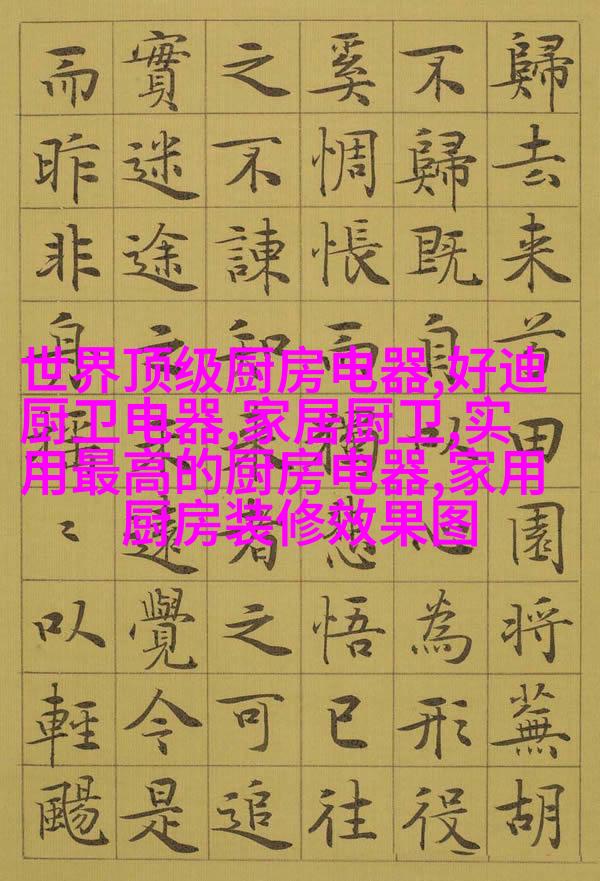 歸去来田園将蕪胡
不歸既自以心為形役
奚惆悵而獨悲悟已往
之不諫知来者之可追
實迷途未遠覺今是
而昨非〻以輕颺
世界顶级厨房电器,好迪
厨卫电器,家居厨卫,实
用最高的厨房电器,家用
厨房装修效果图